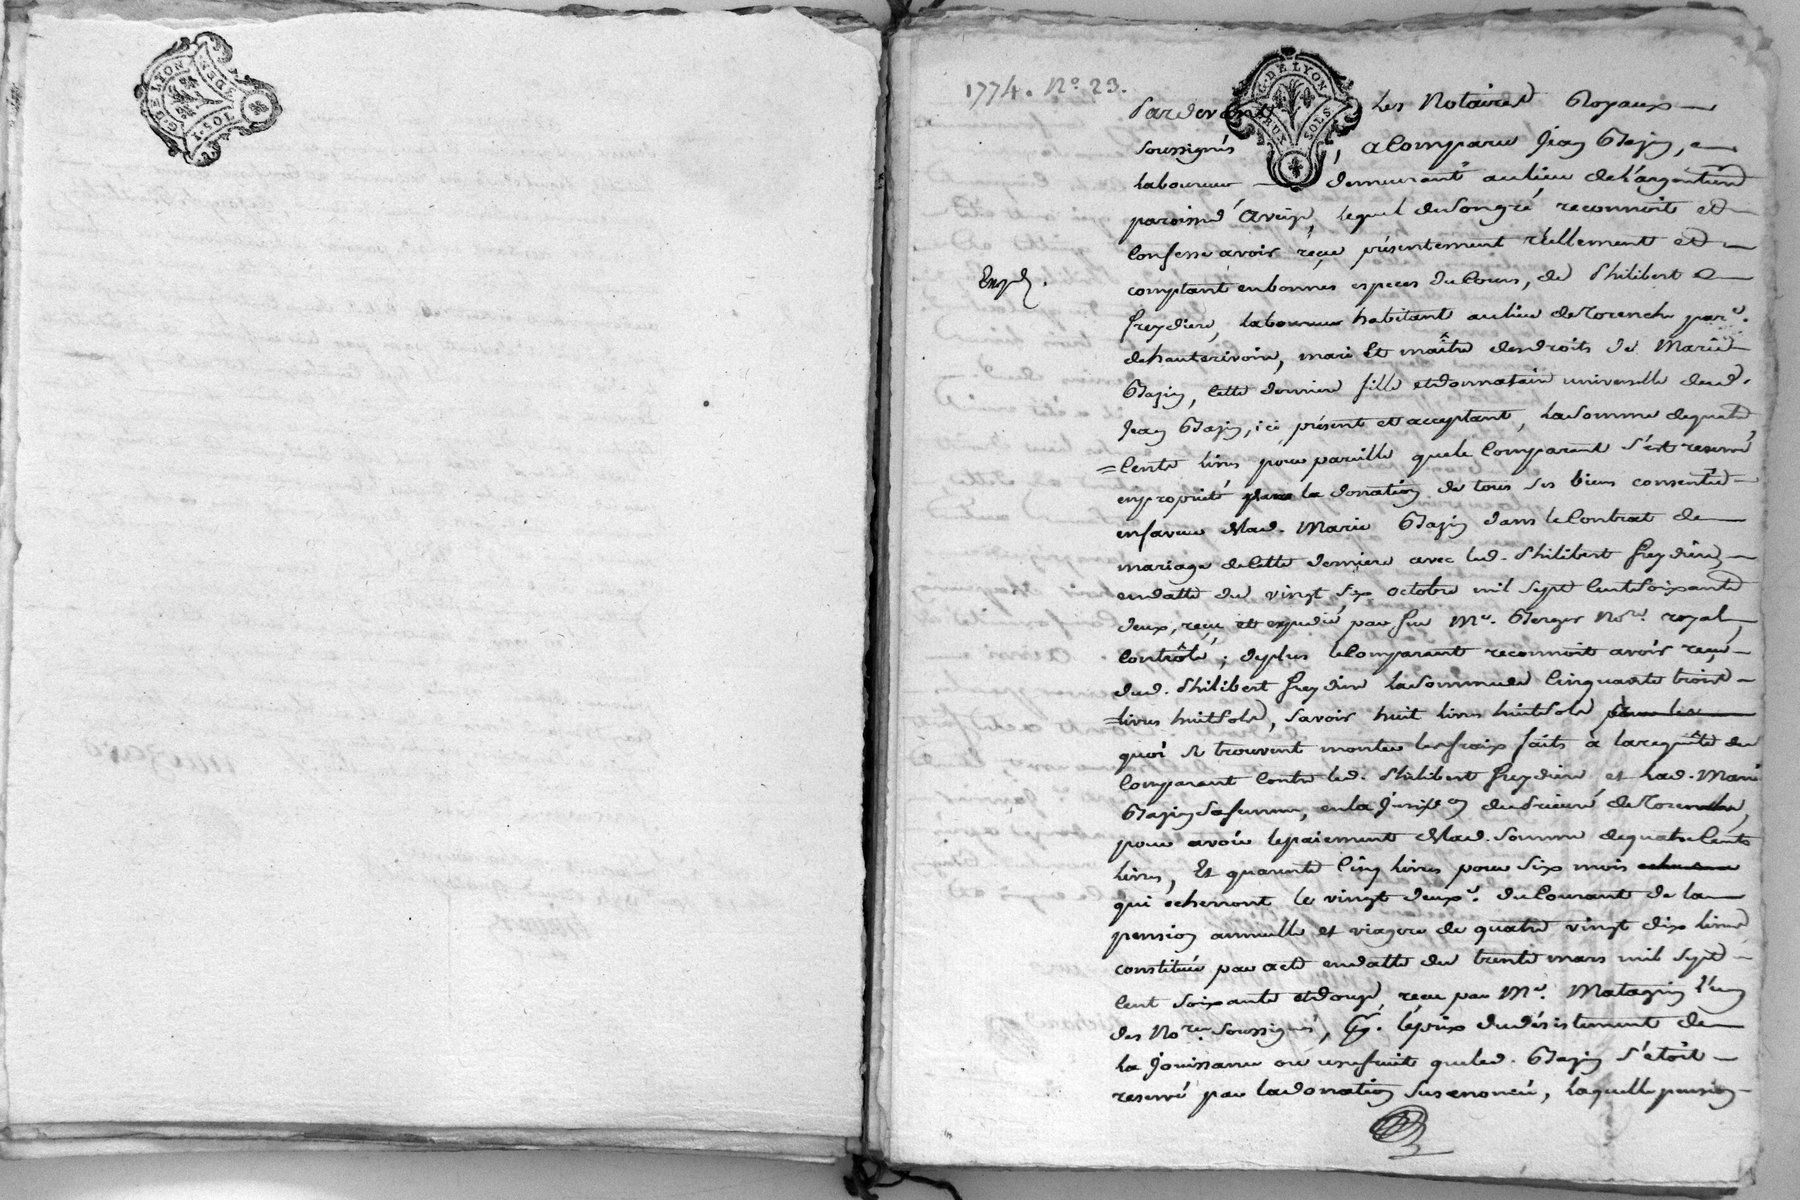 G. DE LYON
1. SOL
DEN
1774. N.o 23.
G. DE LYON
DEUX SOLS
Pardevant Les Notaires Royaux
soussignés, a Comparu Jean Bazin,
Laboureur demeurant au lieu de L'argentiere
paroisse d'Aveize, lequel de son gré reconnoit et
Confesse avoir reçu présentement réellement et
comptant en bonnes especes du Cours, de Philibert
Exp.d
freydiere, Laboureur habitant au lieu de Torenche par.e
de hauterivoire, mari Et maître des droits de Marie
Bazin, cette derniere fille et donnataire universelle dud.
Jean Bazin, ici présent et acceptant, la somme de quatre
=Cents livres pour pareille que le Comparant s'est reservé
en propriété par la donation de tous ses biens consentie
en faveur de lad. Marie Bazin dans le Contrat de
mariage de cette derniere avec led. Philibert freydiere,
en datte du vingt six octobre mil sept Cent soixante
deux, reçu et expedié par feu M.e Berger No.re royal
Contrôlé; de plus le Comparant reconnoit avoir reçu
dud. Philibert freydiere la somme de Cinquante trois
=livres huit sols, savoir huit livres huit sols
quoi se trouvent monter les fraix faits à la requête du
Comparant Contre led. Philibert freydiere et lad. Marie
Bazin sa femme, en la Juris.on du prieuré de Torenche,
pour avoir le paiement de lad. somme de quatre Cents
livres, Et quarante Cinq livres pour six mois
qui echerront le vingt deux.e du Courant de la
pension annuelle et viagere de quatre vingt dix livres
constituée par acte en datte du trente mars mil sept
Cent soixante et douze, reçu par M.e Matagrin l'un
des No.res soussignés, le prix du désistement de
la Jouissance ou usufruit que led. Bazin s'étoit
reservé par la donation sus enoncée, laquelle pension